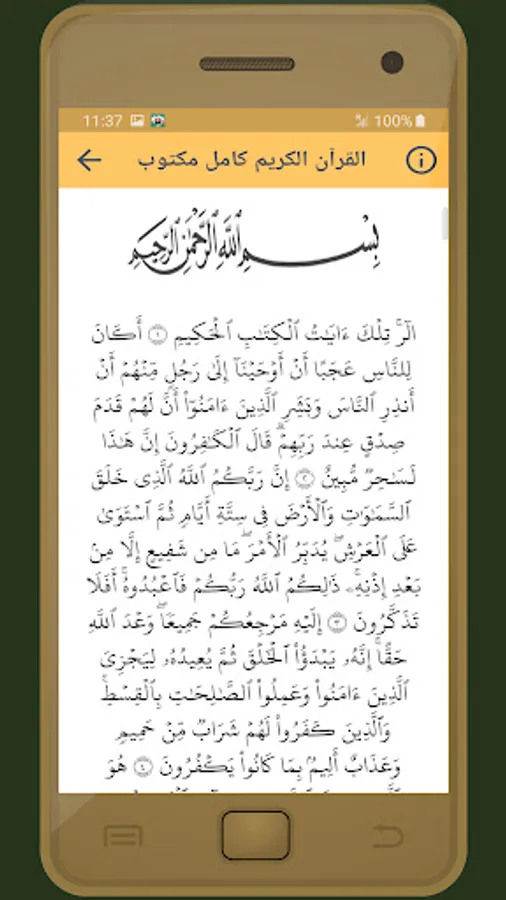 11:37 100%
القرآن الكريم كامل مكتوب
بِسْمِ ٱللَّهِ ٱلرَّحْمَٰنِ ٱلرَّحِيمِ
الٓرۚ تِلۡكَ ءَايَٰتُ ٱلۡكِتَٰبِ ٱلۡحَكِيمِ ١ أَكَانَ
لِلنَّاسِ عَجَبًا أَنۡ أَوۡحَيۡنَآ إِلَىٰ رَجُلٖ مِّنۡهُمۡ أَنۡ
أَنذِرِ ٱلنَّاسَ وَبَشِّرِ ٱلَّذِينَ ءَامَنُوٓاْ أَنَّ لَهُمۡ قَدَمَ
صِدۡقٍ عِندَ رَبِّهِمۡۗ قَالَ ٱلۡكَٰفِرُونَ إِنَّ هَٰذَا
لَسَٰحِرٞ مُّبِينٌ ٢ إِنَّ رَبَّكُمُ ٱللَّهُ ٱلَّذِي خَلَقَ
ٱلسَّمَٰوَٰتِ وَٱلۡأَرۡضَ فِي سِتَّةِ أَيَّامٖ ثُمَّ ٱسۡتَوَىٰ
عَلَى ٱلۡعَرۡشِۖ يُدَبِّرُ ٱلۡأَمۡرَۖ مَا مِن شَفِيعٍ إِلَّا مِنۢ
بَعۡدِ إِذۡنِهِۦۚ ذَٰلِكُمُ ٱللَّهُ رَبُّكُمۡ فَٱعۡبُدُوهُۚ أَفَلَا
تَذَكَّرُونَ ٣ إِلَيۡهِ مَرۡجِعُكُمۡ جَمِيعٗاۖ وَعۡدَ ٱللَّهِ
حَقًّاۚ إِنَّهُۥ يَبۡدَؤُاْ ٱلۡخَلۡقَ ثُمَّ يُعِيدُهُۥ لِيَجۡزِيَ
ٱلَّذِينَ ءَامَنُواْ وَعَمِلُواْ ٱلصَّٰلِحَٰتِ بِٱلۡقِسۡطِۚ
وَٱلَّذِينَ كَفَرُواْ لَهُمۡ شَرَابٞ مِّنۡ حَمِيمٖ
وَعَذَابٌ أَلِيمُۢ بِمَا كَانُواْ يَكۡفُرُونَ ٤ هُوَ